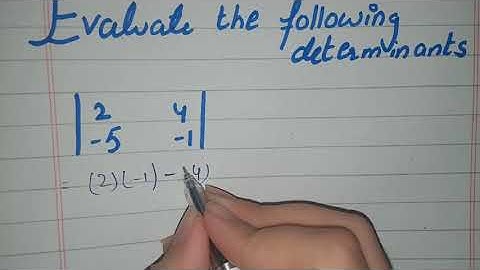 Evaluate the following
determinants
| 2 4 |
| -5 -1 |
= (2)(-1) - (4)